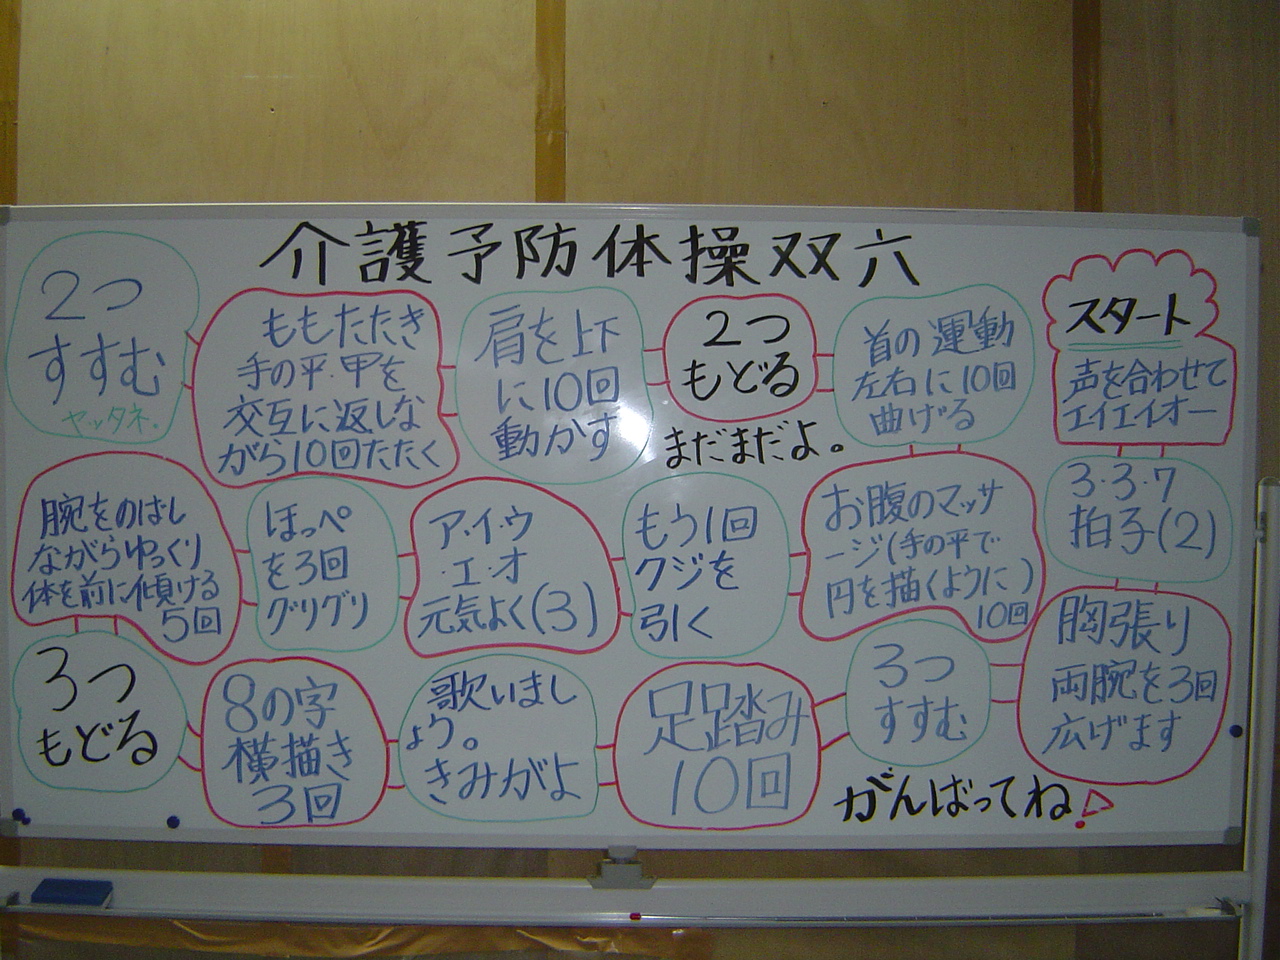 介護予防体操双六
スタート
声を合わせて
エイエイオー
3・3・7
拍子(2)
胸張り
両腕を3回
広げます
3つ
すすむ
がんばってね!
足踏み
10回
歌いまし
ょう。
きみがよ
8の字
横描き
3回
3つ
もどる
腕をのばし
ながらゆっくり
体を前に傾ける
5回
ほっぺ
を3回
グリグリ
ア・イ・ウ
・エ・オ
元気よく(3)
もう1回
クジを
引く
お腹のマッサ
ージ(手の平で
円を描くように)
10回
首の運動
左右に10回
曲げる
2つ
もどる
まだまだよ。
肩を上下
に10回
動かす
ももたたき
手の平・甲を
交互に返しな
がら10回たたく
2つ
すすむ
ヤッタネ.